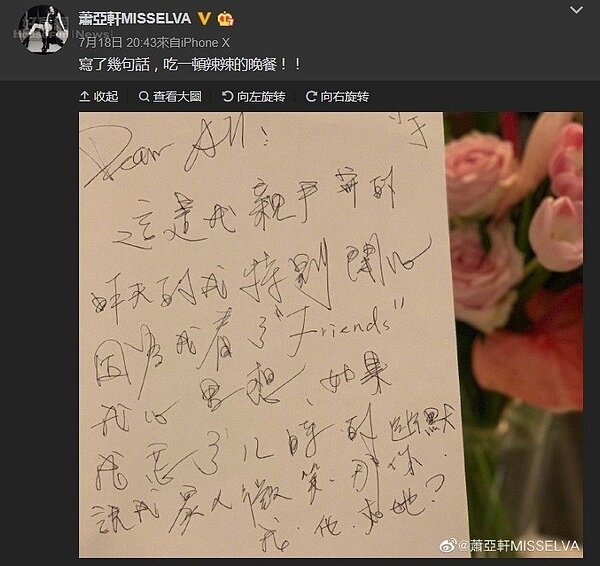 蕭亞軒MISSELVA
7月18日 20:43來自iPhone X
寫了幾句話，吃一頓辣辣的晚餐！！
收起 查看大圖 向左旋转 向右旋转
Dear All:
這是我親手寫的
昨天的我特別開心
因為我看了"Friends"
我心里想、如果
我忘了兒時的幽默
說我是人微笑.那你.
我.他.和她?
@蕭亞軒MISSELVA